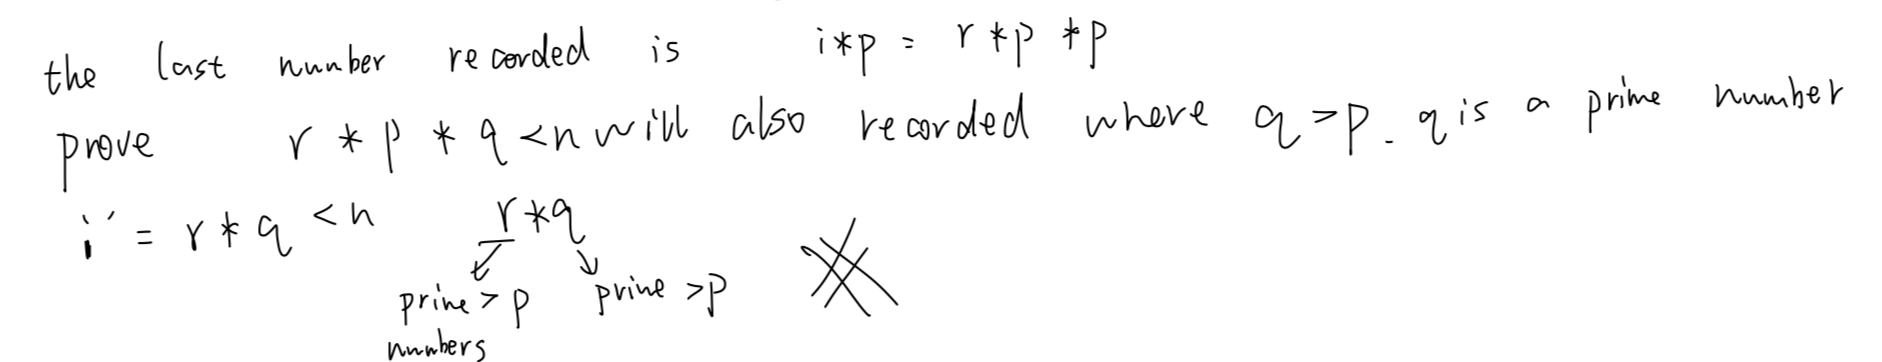 the last number recorded is i*p = r*p*p
prove r*p*q<n will also recorded where q>p. q is a prime number
i' = r*q <n r*q
prime > p prime >p
numbers